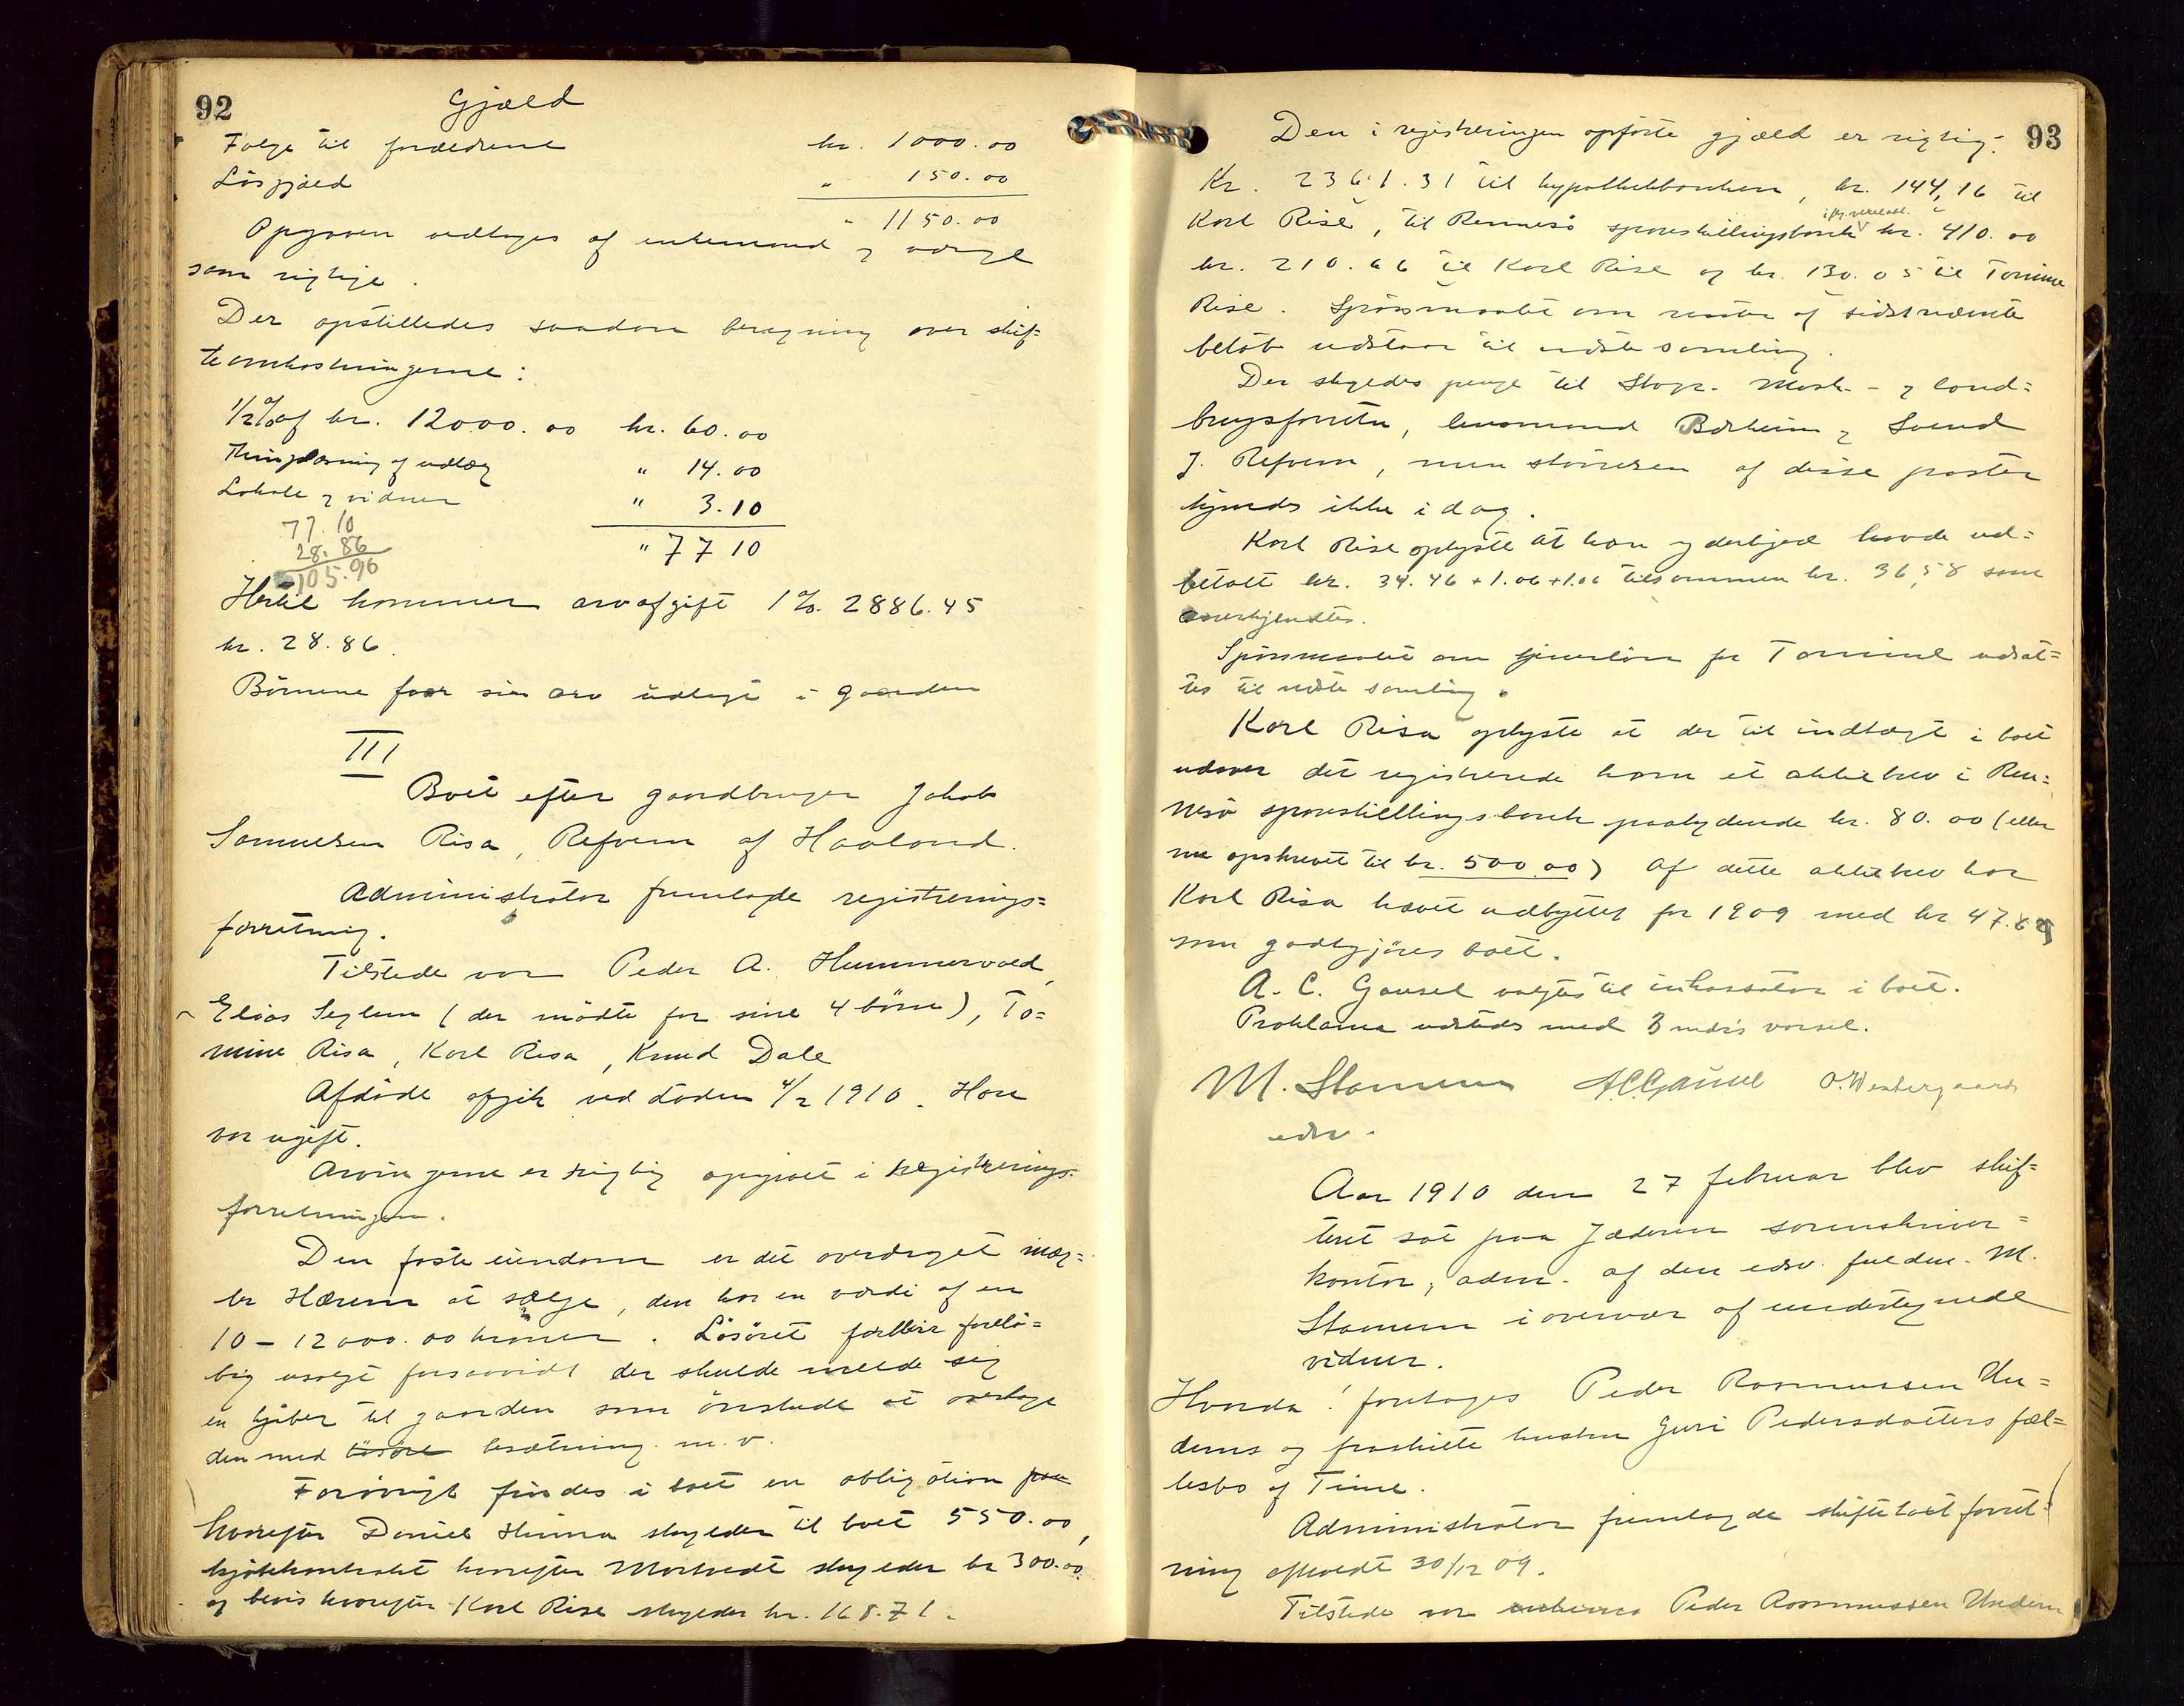 92
Gjæld
Følge til forældrene kr. 1000.00
Løsgjæld " 150.00
" 1150.00
Opgaven vedtages af enkemand og værge
som rigtige.
Der opstilledes saadan beregning over skif=
teomkostningerne:
1/2% af kr. 12000.00 kr. 60.00
Thinglæsning af udlæg " 14.00
Lokale og vidner " 3.10
77.10
28.86
" 77 10
105.96
Hertil kommer arvafgift 1% 2886.45
kr. 28.86.
Börnene faar sin arv udlagt i gaarden
III
Boet efter gaardbruger Jakob
Samuelsen Risa, Refvem af Haaland.
Administrator fremlagde registrerings=
forretning.
Tilstede var Peder A. Hummervold,
Elias Seglem (der mödte for sine 4 börn), To=
mine Risa, Karl Risa, Knud Dale
Afdöde afgik ved döden 4/2 1910. Han
var ugift.
Arvingerne er rigtig opgivet i registrerings=
forretningen.
Den faste eiendom er det overdraget mæg=
ler Hærem at sælge, den har en værdi af en
10 - 12000.00 kroner. Lösöret forblir forelö=
big usolgt forsaavidt der skulde melde sig
en kjøber til gaarden som önskede at overtage
den med lösöre besætning m.v.
Forövrigt findes i boet en obligation paa
hvorefter Daniel Hinna skylder til boet 550.00,
kjøbekontrakt hvorefter Mortvedt skylder kr 300.00
og bevis hvorefter Karl Risa skylder kr. 168.71.
93
Den i registreringen opförte gjæld er rigtig:
Kr. 2361.31 til hypothekbanken, kr. 144,16 til
Karl Rise, til Rennesö spareskillingsbank kr. 410.00
kr. 210.66 til Karl Rise og kr. 130.05 til Tomine
Rise. Spörsmaalet om renter af sidstnævnte
belöb udstaar til næste samling.
Der skyldes penge til Stavgr. Mask.- og land=
brugsforretn, lensmand Bærheim og Svend
J. Refvem, men störrelsen af disse poster
kjendes ikke i dag.
Karl Rise oplyste at han yderligere havde ud=
betalt kr. 34.46 + 1.06 + 1.06 tilsammen kr. 36,58 som
anerkjendtes.
Spörsmaalet om tjenerlön for Tomine udsat=
tes til næste samling.
Karl Risa oplyste at der til indtægt i boet
udover det registrerede kom et aktiebrev i Ren=
nesö spareskillingsbank paalydende kr. 80.00 (eller
nu opskrevet til kr. 500.00) Af dette aktiebrev har
Karl Risa hævet udbyttet for 1909 med kr 47.69
som godtgjöres boet.
A. C. Gausel valgtes til inkassator i boet.
Proklama udstedes med 3 mdrs varsel.
M. Stamnes A.C.Gausel O. Westergaard
edsv.
Aar 1910 den 27 februar blev skif=
teret sat paa Jæderen sorenskriver=
kontor, adm. af den edsv. fuldm. M.
Stamnes i overvær af undertegnede
vidner.
Hvorda: foretages Peder Rasmussen Un=
dems og fraskilte hustru Guri Pedersdatters fæl=
lesbo af Time.
Administrator fremlagde skifteforret=
ning afholdt 30/12 09.
Tilstede var Peder Rasmussen Undem